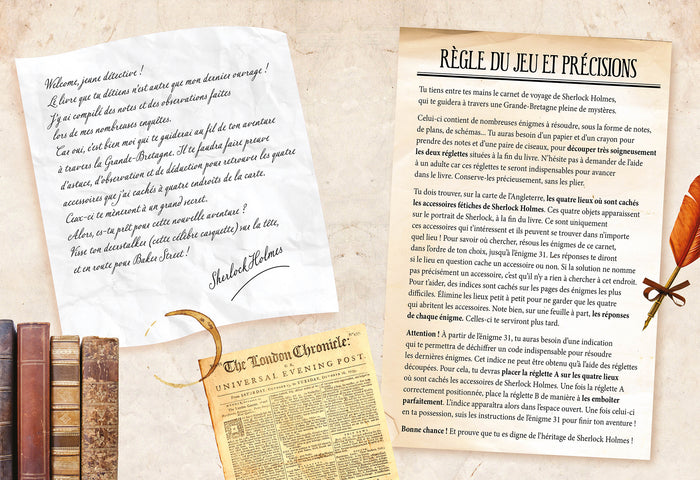 Welcome, jeune détective !
Le livre que tu détiens n'est autre que mon dernier ouvrage !
J'y ai compilé des notes et des observations faites
lors de mes nombreuses enquêtes.
Car oui, c'est bien moi qui te guiderai au fil de ton aventure
à travers la Grande-Bretagne. Il te faudra faire preuve
d'astuce, d'observation et de déduction pour retrouver les quatre
accessoires que j'ai cachés à quatre endroits de la carte.
Ceux-ci te mèneront à un grand secret.
Alors, es-tu prêt pour cette nouvelle aventure ?
Visse ton deerstalker (cette célèbre casquette) sur la tête,
et en route pour Baker Street !
Sherlock Holmes
The London Chronicle:
OR,
UNIVERSAL EVENING POST.
RÈGLE DU JEU ET PRÉCISIONS
Tu tiens entre tes mains le carnet de voyage de Sherlock Holmes,
qui te guidera à travers une Grande-Bretagne pleine de mystères.
Celui-ci contient de nombreuses énigmes à résoudre, sous la forme de notes,
de plans, de schémas... Tu auras besoin d'un papier et d'un crayon pour
prendre des notes et d'une paire de ciseaux, pour découper très soigneusement
les deux réglettes situées à la fin du livre. N'hésite pas à demander de l'aide
à un adulte car ces réglettes te seront indispensables pour avancer
dans le livre. Conserve-les précieusement, sans les plier.
Tu dois trouver, sur la carte de l'Angleterre, les quatre lieux où sont cachés
les accessoires fétiches de Sherlock Holmes. Ces quatre objets apparaissent
sur le portrait de Sherlock, à la fin du livre. Ce sont uniquement
ces accessoires qui t'intéressent et ils peuvent se trouver dans n'importe
quel lieu ! Pour savoir où chercher, résous les énigmes de ce carnet,
dans l'ordre de ton choix, jusqu'à l'énigme 31. Les réponses te diront
si le lieu en question cache un accessoire ou non. Si la solution ne nomme
pas précisément un accessoire, c'est qu'il n'y a rien à chercher à cet endroit.
Pour t'aider, des indices sont cachés sur les pages des énigmes les plus
difficiles. Élimine les lieux petit à petit pour ne garder que les quatre
qui abritent les accessoires. Note bien, sur une feuille à part, les réponses
de chaque énigme. Celles-ci te serviront plus tard.
Attention ! À partir de l'énigme 31, tu auras besoin d'une indication
qui te permettra de déchiffrer un code indispensable pour résoudre
les dernières énigmes. Cet indice ne peut être obtenu qu'à l'aide des réglettes
découpées. Pour cela, tu devras placer la réglette A sur les quatre lieux
où sont cachés les accessoires de Sherlock Holmes. Une fois la réglette A
correctement positionnée, place la réglette B de manière à les emboîter
parfaitement. L'indice apparaîtra alors dans l'espace ouvert. Une fois celui-ci
en ta possession, suis les instructions de l'énigme 31 pour finir ton aventure !
Bonne chance ! Et prouve que tu es digne de l'héritage de Sherlock Holmes !